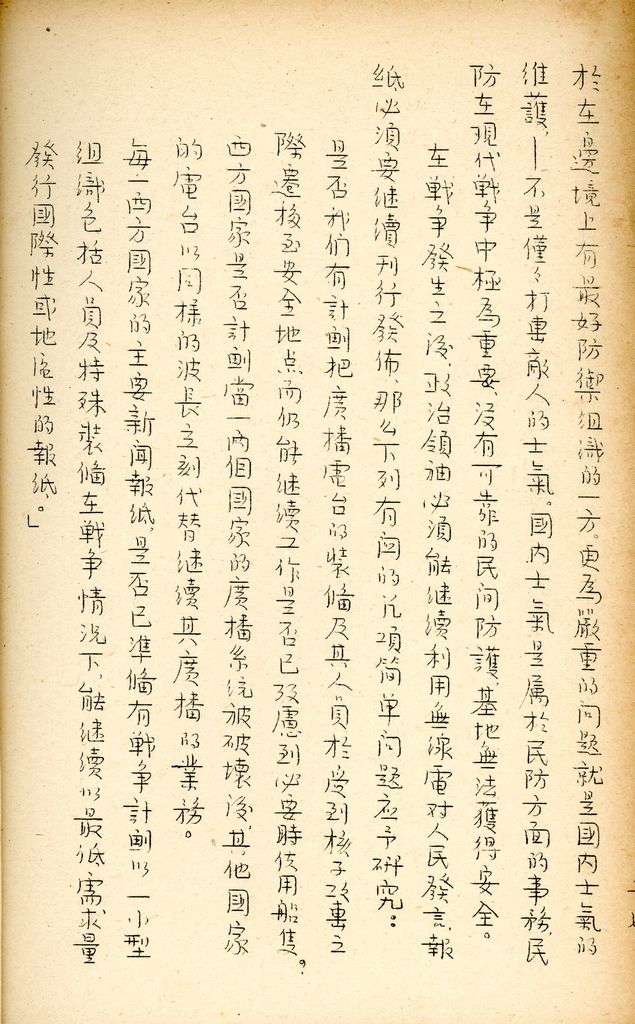 於在邊境上有最好防禦組織的一方。更為嚴重的问題就是國內士氣的
維護，—不是僅々打擊敵人的士氣。國內士氣是属於民防方面的事務，民
防在現代戦争中極為重要，没有可靠的民间防護，基地無法獲得安全。
在戦争發生之後，政治領袖必須能继續利用無線電对人民發言，報
纸必須要继續刊行發佈，那么下列有闗的几項简单问題应予研究：
是否我们有計劃把廣播電台的装備及其人員於受到核子攻擊之
際遷移至安全地点而仍能继續工作是否已攷慮到必要時使用船隻。
西方國家是否計劃當一両個國家的廣播系统被破壞後，其他國家
的電台以同樣的波長立刻代替继續其廣播的業務。
每一西方國家的主要新闻報纸，是否已準備有戦争計劃以一小型
组織包括人員及特殊装備在戦争情况下，能继續以最低需求量
發行國際性或地區性的報纸。」